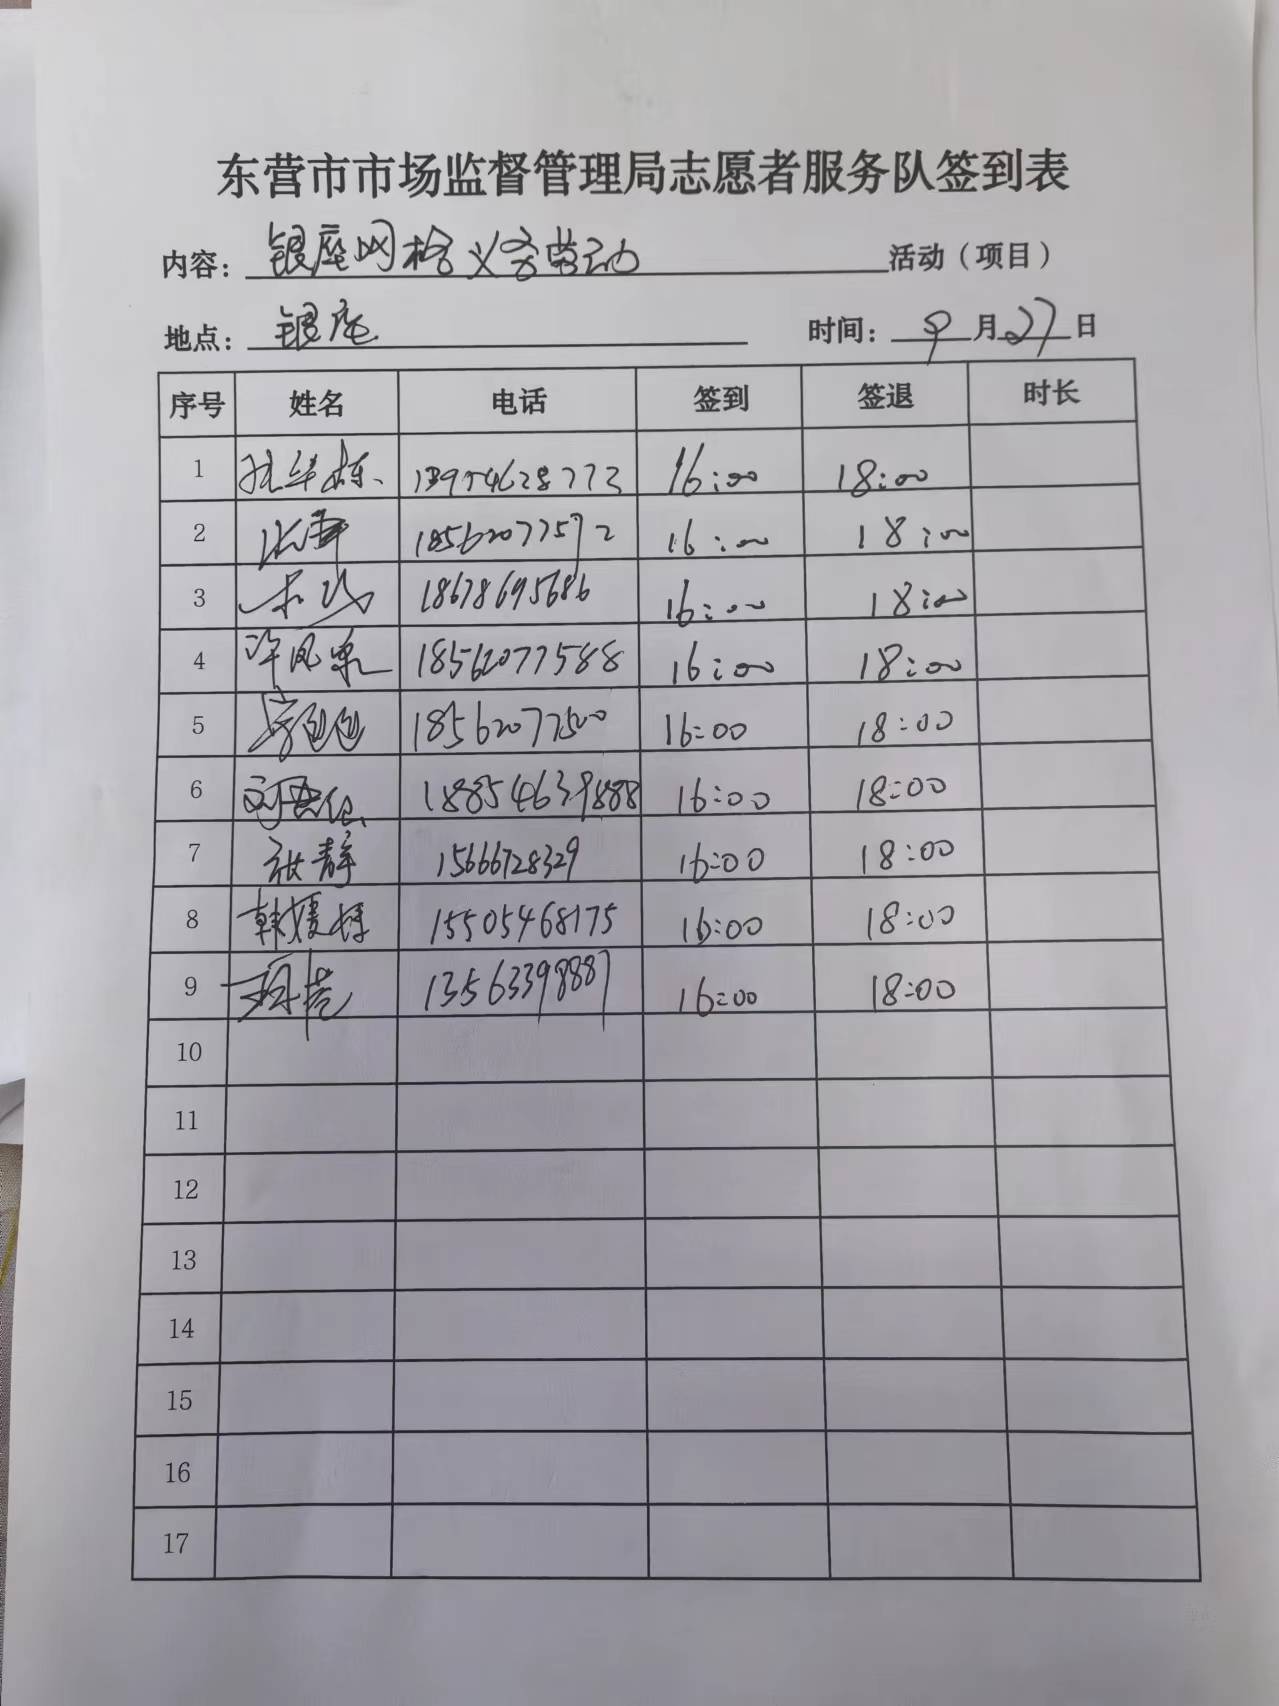 东营市市场监督管理局志愿者服务队签到表
内容：银座网格义务劳动 活动（项目）
地点：银座 时间：9月27日
序号 姓名 电话 签到 签退 时长
1 13954628772 16:00 18:00
2 18562077572 16:00 18:00
3 18678695686 16:00 18:00
4 18562077588 16:00 18:00
5 18562077500 16:00 18:00
6 18854639888 16:00 18:00
7 张静 15666728329 16:00 18:00
8 韩媛婷 15505468175 16:00 18:00
9 13563398887 16:00 18:00
10
11
12
13
14
15
16
17